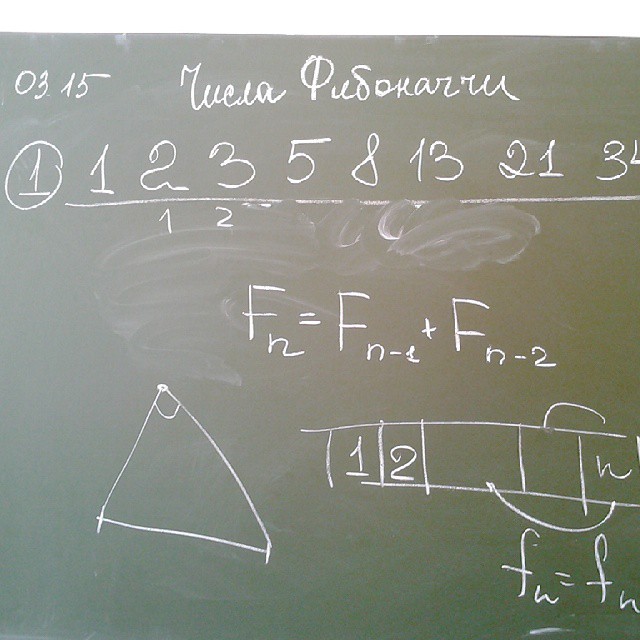 03.15 Числа Фибоначчи
① 1 2 3 5 8 13 21 34
1 2
Fn = Fn-1 + Fn-2
1 2 n
fn = fn